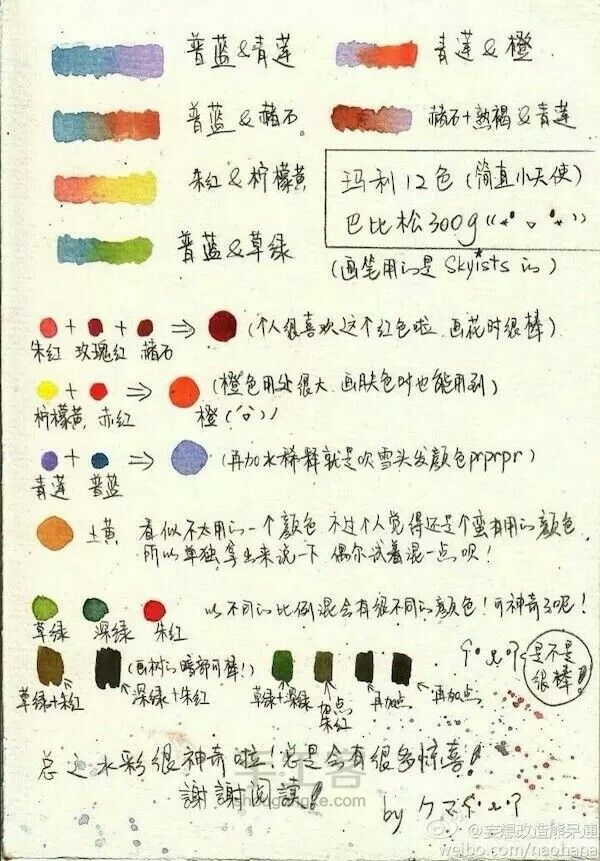 普蓝&青莲
青莲&橙
普蓝&赭石
赭石+熟褐&青莲
朱红&柠檬黄
普蓝&草绿
玛利12色(简直小天使)
巴比松300g
(画笔用的是Skyists的)
+ + ⇒ (个人很喜欢这个红色啦 画花时很棒)
朱红 玫瑰红 赭石
+ ⇒ (橙色用处很大 画肤色时也能用到)
柠檬黄 赤红 橙
+ ⇒ (再加水稀释就是吹雪头发颜色prprpr)
青莲 普蓝
土黄 看似不太用的一个颜色 不过个人觉得还是个蛮有用的颜色
所以单独拿出来说一下 偶尔试着混一点呗!
以不同的比例混会有很不同的颜色!可神奇了呢!
草绿 深绿 朱红
(画树的暗部可棒!)
是不是
很棒!!
草绿+朱红 深绿+朱红 草绿+深绿 加点朱红 再加点 再加点
总之水彩很神奇啦!总是会有很多惊喜!
謝謝阅读!
by クマ
手工客
shougongke.com
@妄想改造熊呆運
weibo.com/naohana